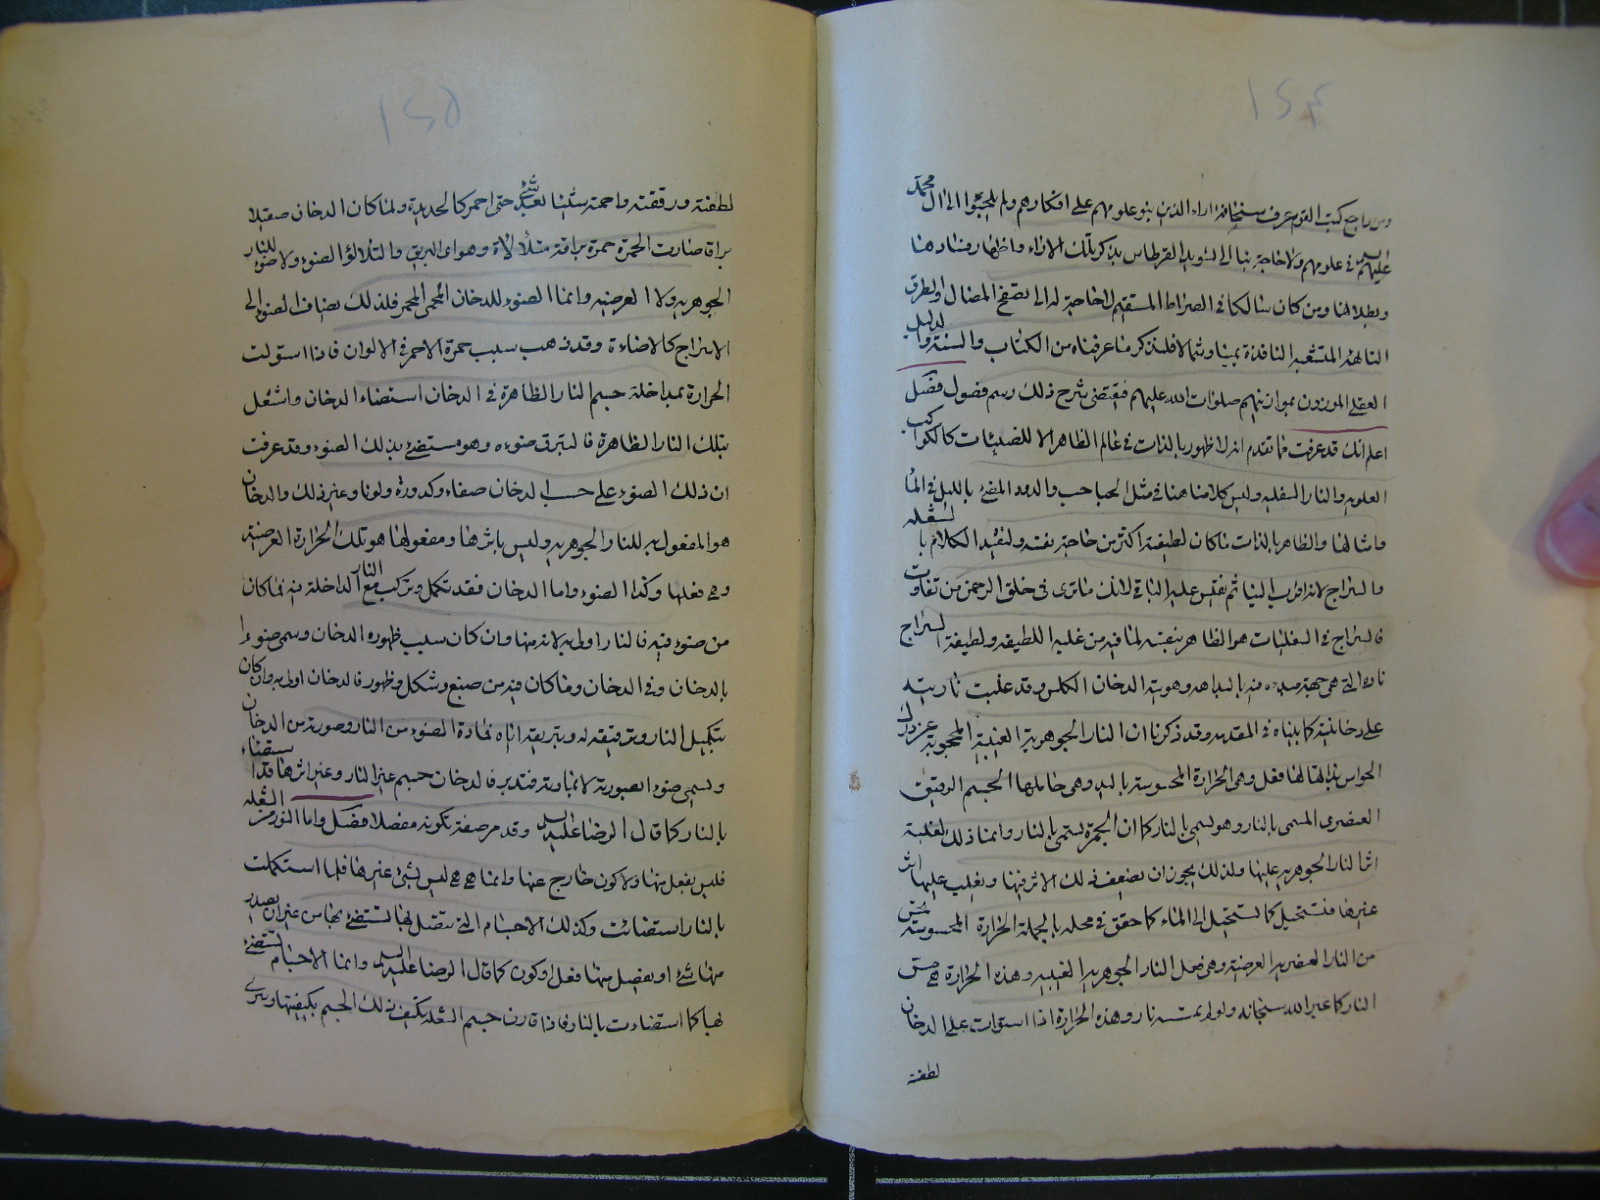 ١٢٤
ومن راجع كتب القوم عرف سخافة اراء الذين بنو علومهم على افكارهم ولم يلجئوا الى ال محمد
عليهم السلام في علومهم ولا حاجة بنا الى تسويد القرطاس بذكر تلك الاراء واظهار فسادها
وبطلانها ومن كان سالكا في الصراط المستقيم لا حاجة له الى تصفح المضال والطرق
التائهة المتشعبة النافذة يمينا وشمالا فلنذكر ما عرفناه من الكتاب والسنة والدليل
العقلي الموزون بموازينهم صلوات الله عليهم فيقتضي شرح ذلك رسم فصول فصل
اعلم انك قد عرفت مما تقدم ان لا ظهور بالذات في عالم الظاهر الا للمضيئات كالكواكب
العلوية والنار السفلية وليس كلامنا هنا في مثل الحباحب والدود المضئ بالليل في الماء
وامثالها والظاهر بالذات ما كان لطيفته اكثر من حاجة نفسه ولنقيد الكلام بالشعلة
والسراج لانه اقرب الينا ثم نقيس عليه الباقي لانك ما ترى في خلق الرحمن من تفاوت
فالسراج في السفليات هو الظاهر بنفسه لما فيه من غلبة اللطيفة ولطيفة السراج
ناره التي هي جهة مبدئه فيه بالبداهة وهويته الدخان الكلس وقد غلبت ناريته
على دخانيته كما بيناه في المقدمة وقد ذكرنا ان النار الجوهرية الغيبية المحجوبة عن درك
الحواس بذاتها لها فعل وهي الحرارة المحسوسة باليد وهي حاملها الجسم الرقيق
العنصري المسمى بالنار وهو يسمى بالنار كما ان الجمرة تسمى بالنار وانما ذلك لغلبة
اثر النار الجوهرية عليها ولذلك يجوز ان يضعف ذلك الاثر فيها ويغلب عليها اثر
غيرها فتستحيل كما تستحيل الى الماء كما حقق في محله بالجملة الحرارة المحسوسة ليس
من النار العنصرية العرضية وهي فعل النار الجوهرية الغيبية وهذه الحرارة هي مس
النار كما عبر الله سبحانه ولو لم تمسسه نار وهذه الحرارة اذا استولت على الدخان
لطفته
١٢٥
لطفته ورققته واحمته شيئا بعد شئ حتى احمر كالحديدة ولما كان الدخان صقيلا
براقا صارت الحمرة حمرة براقة متلألأة وهو اي البريق والتلألؤ الضوء ولا ضوء للنار
الجوهرية ولا العرضية وانما الضوء للدخان المحمي المحمر فلذلك يضاف الضوء الى
السراج كالاضاءة وقد ذهب سبب حمرة الاحمر في الالوان فاذا استولت
الحرارة بمداخلة جسم النار الظاهرة في الدخان استضاء الدخان واشتعل
بتلك النار الظاهرة فالبرق ضوءه وهو مستضئ بذلك الضوء وقد عرفت
ان ذلك الضوء على حسب الدخان صفاء وكدورة ولونا وغير ذلك والدخان
هو المفعول به للنار الجوهرية وليس باثرها ومفعولها هو تلك الحرارة العرضية
وهي فعلها وكذا الضوء واما الدخان فقد تكمل وتركب مع النار الداخلة فيه فما كان
من ضوء فيه فالنار اولى به لانه منها وان كان سبب ظهوره الدخان وسمي ضوءا
بالدخان وفي الدخان وما كان فيه من صبغ وشكل وظهور فالدخان اولى به وان كان
بتكميل النار وترقيقه له وبتربيقه اياه فمادة الضوء من النار وصورته من الدخان
ويسمى ضوء الصورته لا بمادته فتدبر فالدخان جسم غير النار وغير اثرها قد استضاء
بالنار كما قال الرضا عليه السلام وقد مر صفة تكونه مفصلا فصل واما النور من الشعلة
فليس بفعل منها ولا كون خارج عنها وانما هي هي ليس شئ غيرها فلما استكملت
بالنار استضائت وكذلك الاجسام التي تتصل بها تستضئ بها من غير ان يصدر
منها شئ او يفصل منها فعل او كون كما قال الرضا عليه السلام وانما الاجسام تستضئ
لها كما استضاءت بالنار فاذا قارن جسم الشعلة تكيف ذلك الجسم بكيفيتها ويرى